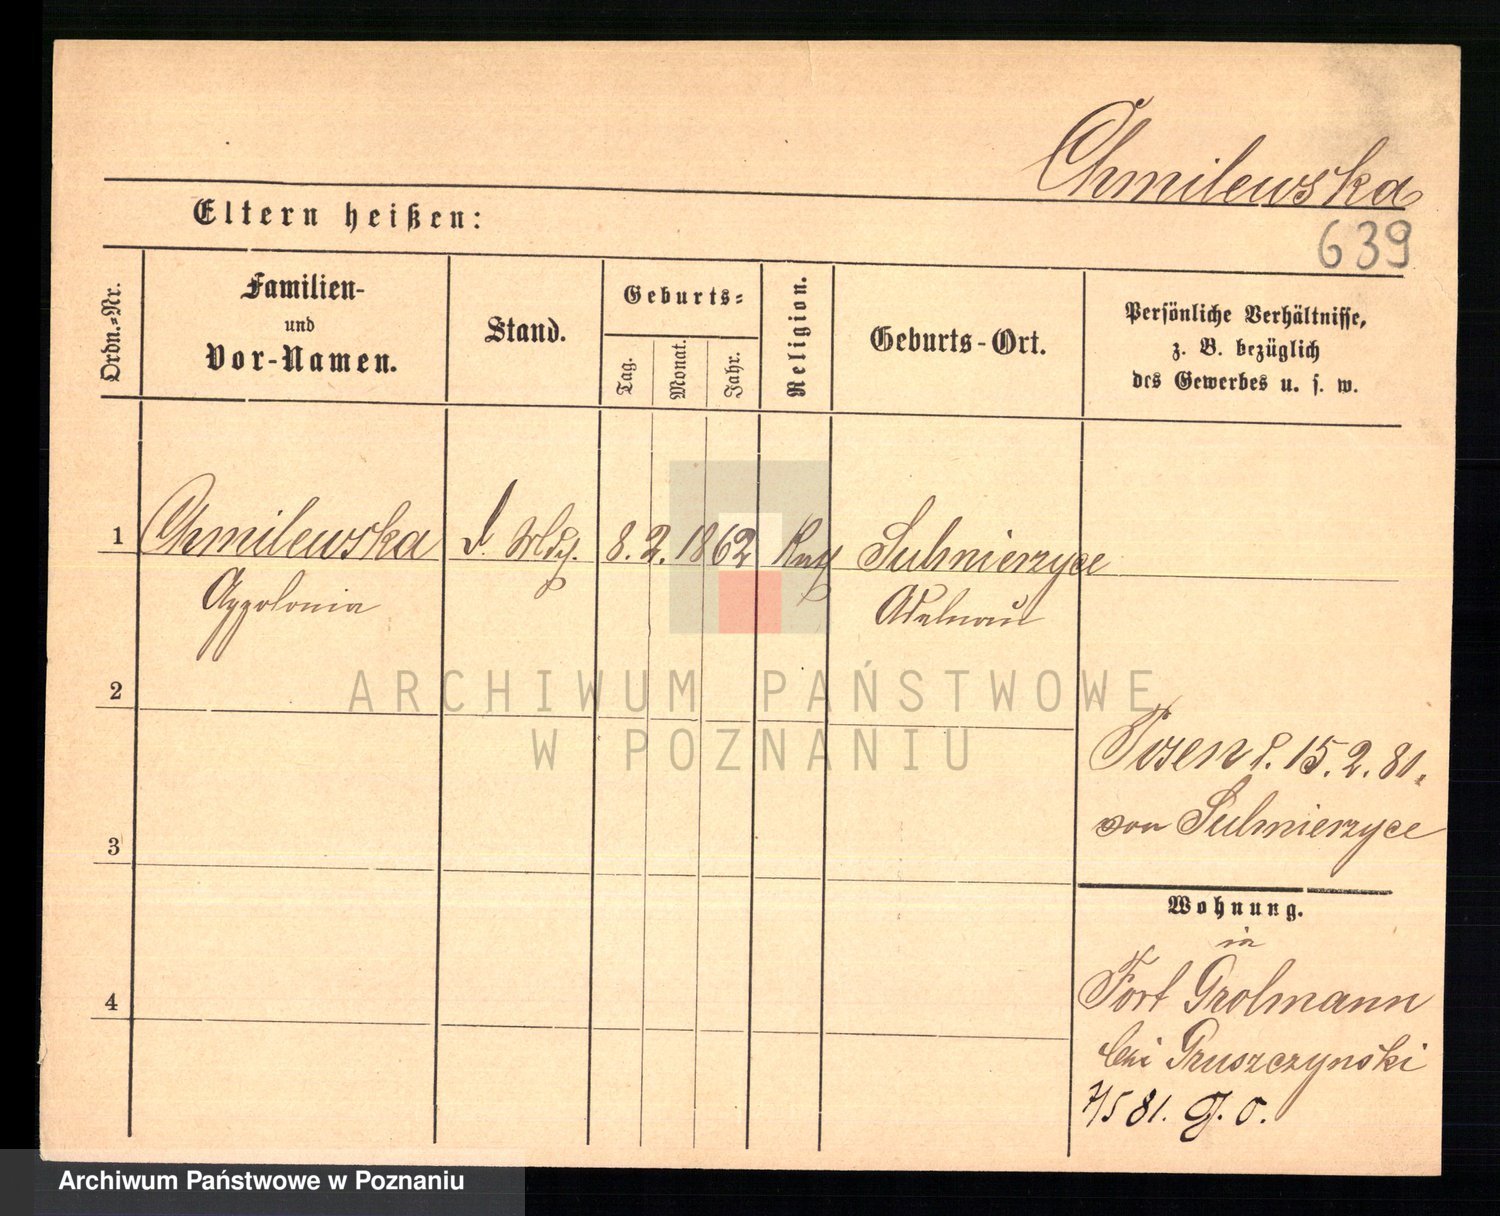 Chmilewska
Eltern heißen:
639
Ordn.=Nr.
Familien-
und
Vor-Namen.
Stand.
Geburts=
Tag.
Monat.
Jahr.
Religion.
Geburts-Ort.
Persönliche Verhältnisse,
z. B. bezüglich
des Gewerbes u. s. w.
1 Chmilewska 8. 2. 1862 Sulmierzyce
Appolonia Adelnau
2
ARCHIWUM PAŃSTWOWE
W POZNANIU
Posen d. 15. 2. 81.
von Sulmierzyce
3
Wohnung.
in
Fort Grolmann
4
bei Gruszczynski
7/5 81. G. o.
Archiwum Państwowe w Poznaniu